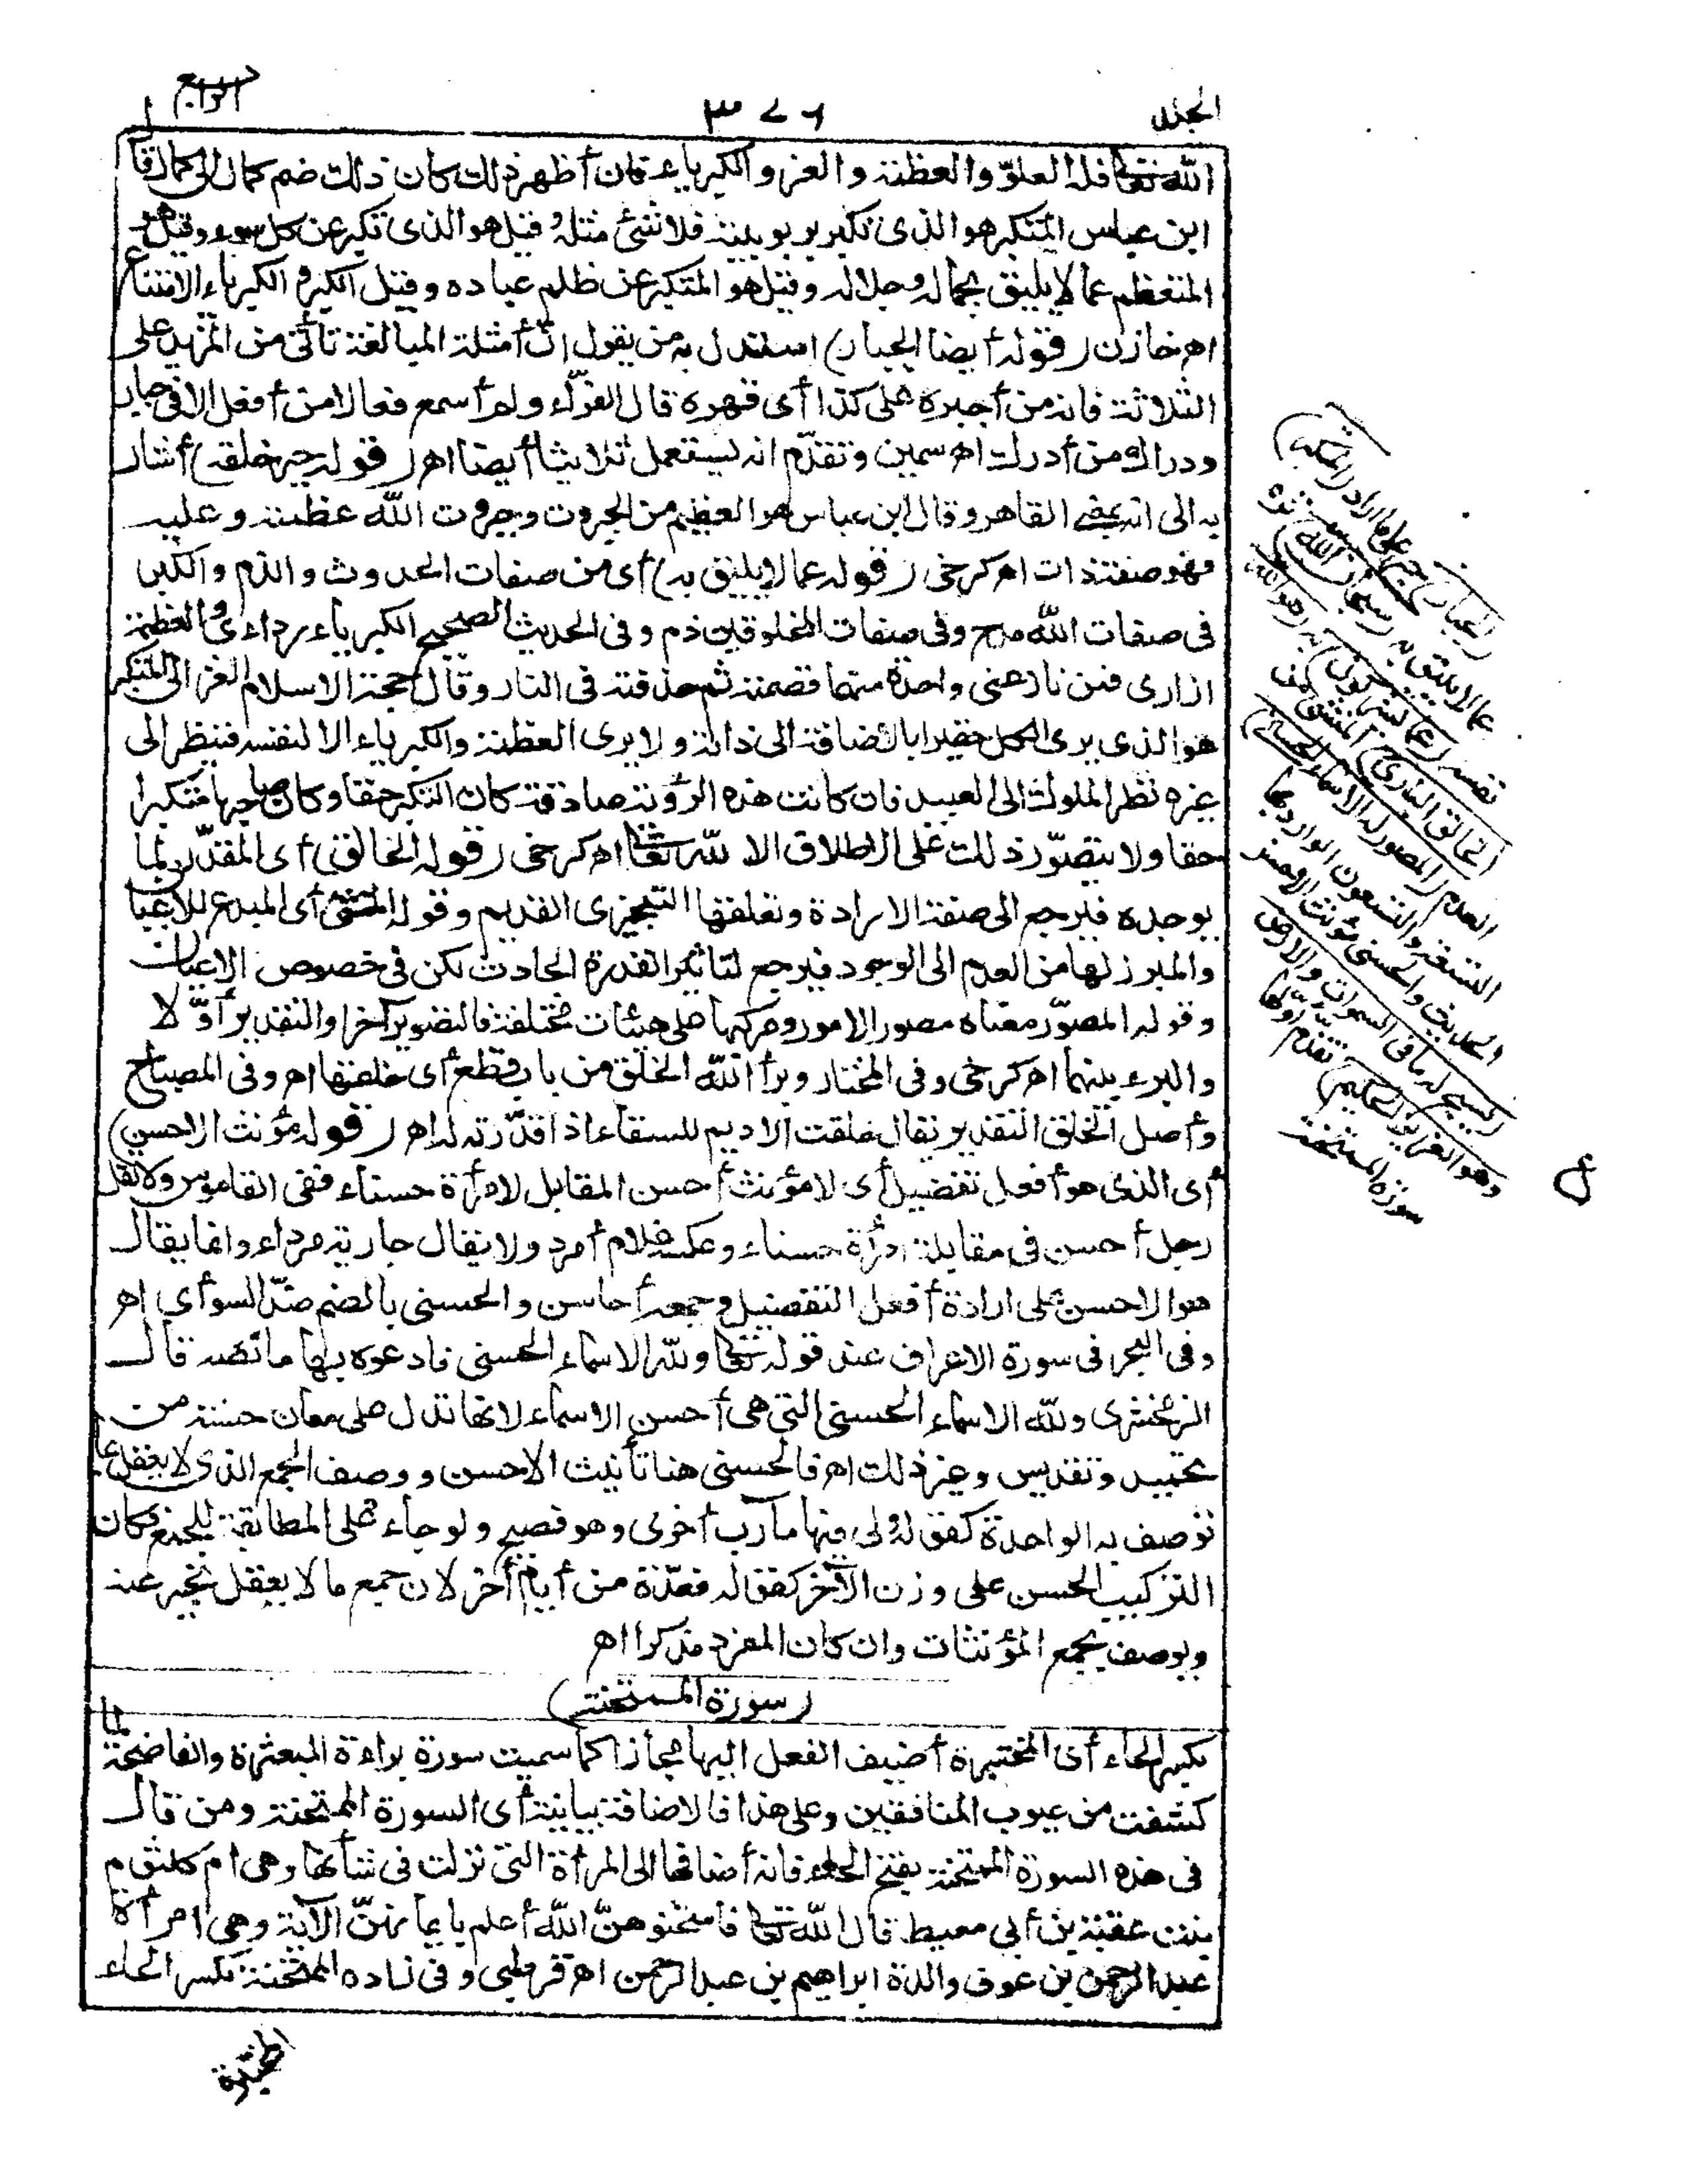 الجزء
٣٧٦
الرابع
الله تعالى فله العلوّ والعظمة والعز والكبرياء فان أظهر ذلك كان ذلك ضم كمال الى كمال قال
ابن عباس المتكبر هو الذى تكبر بربوبيته فلا شئ مثله وقيل هو الذى تكبر عن كل سوء وقيل هو
المتعظم عما لا يليق بجماله وجلاله وقيل هو المتكبر عن ظلم عباده وقيل الكبر و الكبرياء الامتناع
اهـ خازن (قوله أيضا الجبار) استدل به من يقول ان أمثلة المبالغة تأتى من المزيد على
الثلاثة فانه من أجبره على كذا أى قهره قال الفرّاء ولم أسمع فعالا من أفعل الا فى جبار
ودراك من أدرك اهـ سمين وتقدّم انه يستعمل ثلاثيا أيضا اهـ (قوله جبر خلقه) أشار
به الى انه بمعنى القاهر وقال ابن عباس هو العظيم من الجبروت وجبروت الله عظمته وعليه
فهو صفة ذات اهـ كرخى (قوله عما لا يليق به) أى من صفات الحدوث والذم والكبر
فى صفات الله مدح وفى صفات المخلوقين ذم وفى الحديث الصحيح الكبرياء ردائى والعظمة
ازارى فمن نازعنى واحدة منهما قصمته ثم حذفته فى النار وقال حجة الاسلام الغزالى المتكبر
هو الذى يرى الكل حقيرا بالاضافة الى ذاته ولا يرى العظمة والكبرياء الا لنفسه فينظر الى
غيره نظر الملوك الى العبيد فان كانت هذه الرؤية صادقة كان التكبر حقا وكان صاحبها متكبرا
حقا ولا يتصوّر ذلك على الاطلاق الا لله تعالى اهـ كرخى (قوله الخالق) أى المقدّر لما
يوجده فيرجع الى صفة الارادة وتعلقها التنجيزى القديم وقوله المنشئ أى المبدع للأعيان
والمبرز لها من العدم الى الوجود فيرجع لتأثير القدرة الحادث لكن فى خصوص الاعيان
وقوله المصوّر معناه مصور الامور ومركبها على هيئات مختلفة فالتصوير آخرا والتقدير أوّلا
والبرء بينهما اهـ كرخى وفى المختار وبرأ الله الخلق من باب قطع أى خلقها اهـ وفى المصباح
وأصل الخلق التقدير يقال خلقت الاديم للسقاء اذا قدّرته له اهـ (قوله مؤنث الاحسن)
أى الذى هو أفعل تفضيل أى لا مؤنث أحسن المقابل لامرأة حسناء ففى القاموس ولا تقل
رجل أحسن فى مقابلة امرأة حسناء وعكسه غلام أمرد ولا يقال جارية مرداء وانما يقال
هو الاحسن على ارادة أفعل التفضيل وجمعه أحاسن والحسنى بالضم ضدّ السوأى اهـ
وفى البحر فى سورة الاعراف عند قوله تعالى ولله الاسماء الحسنى فادعوه بها ما نصه قال
الزمخشرى ولله الاسماء الحسنى التى هى أحسن الاسماء لانها تدل على معان حسنة من
تحميد وتقديس وغير ذلك اهـ فالحسنى هنا تأنيث الاحسن ووصف الجمع الذى لا يعقل بما
توصف به الواحدة كقوله ولى فيها مآرب أخرى وهو فصيح ولو جاء على المطابقة للجمع لكان
التركيب الحسن على وزن الأخر كقوله فعدّة من أيام أخر لان جمع ما لا يعقل يخبر عنه
ويوصف بجمع المؤنثات وان كان المفرد مذكرا اهـ
(سورة الممتحنة)
بكسر الحاء أى المختبرة أضيف الفعل اليها مجازا كما سميت سورة براءة المبعثرة والفاضحة لما
كشفت من عيوب المنافقين وعلى هذا فالاضافة بيانية أى السورة الممتحنة ومن قال
فى هذه السورة الممتحنة بفتح الحاء فانه أضافها الى المرأة التى نزلت فى شأنها وهى ام كلثوم
بنت عقبة بن أبى معيط قال الله تعالى فامتحنوهنّ الله أعلم بايمانهنّ الآية وهى امرأة
عبد الرحمن بن عوف والدة ابراهيم بن عبد الرحمن اهـ قرطبى وفى زاده الممتحنة بكسر الحاء
(الجبار) جبر خلقه على ما أراد (المتكبر)
عما لا يليق به (سبحان الله) نزه
نفسه (عما يشركون) به (هو الله
الخالق البارئ) المنشئ من
العدم (المصور له الاسماء الحسنى)
التسعة والتسعون الوارد بها
الحديث والحسنى مؤنث الاحسن
(يسبح له ما فى السموات والارض
وهو العزيز الحكيم) تقدّم أوّلها
سورة الممتحنة